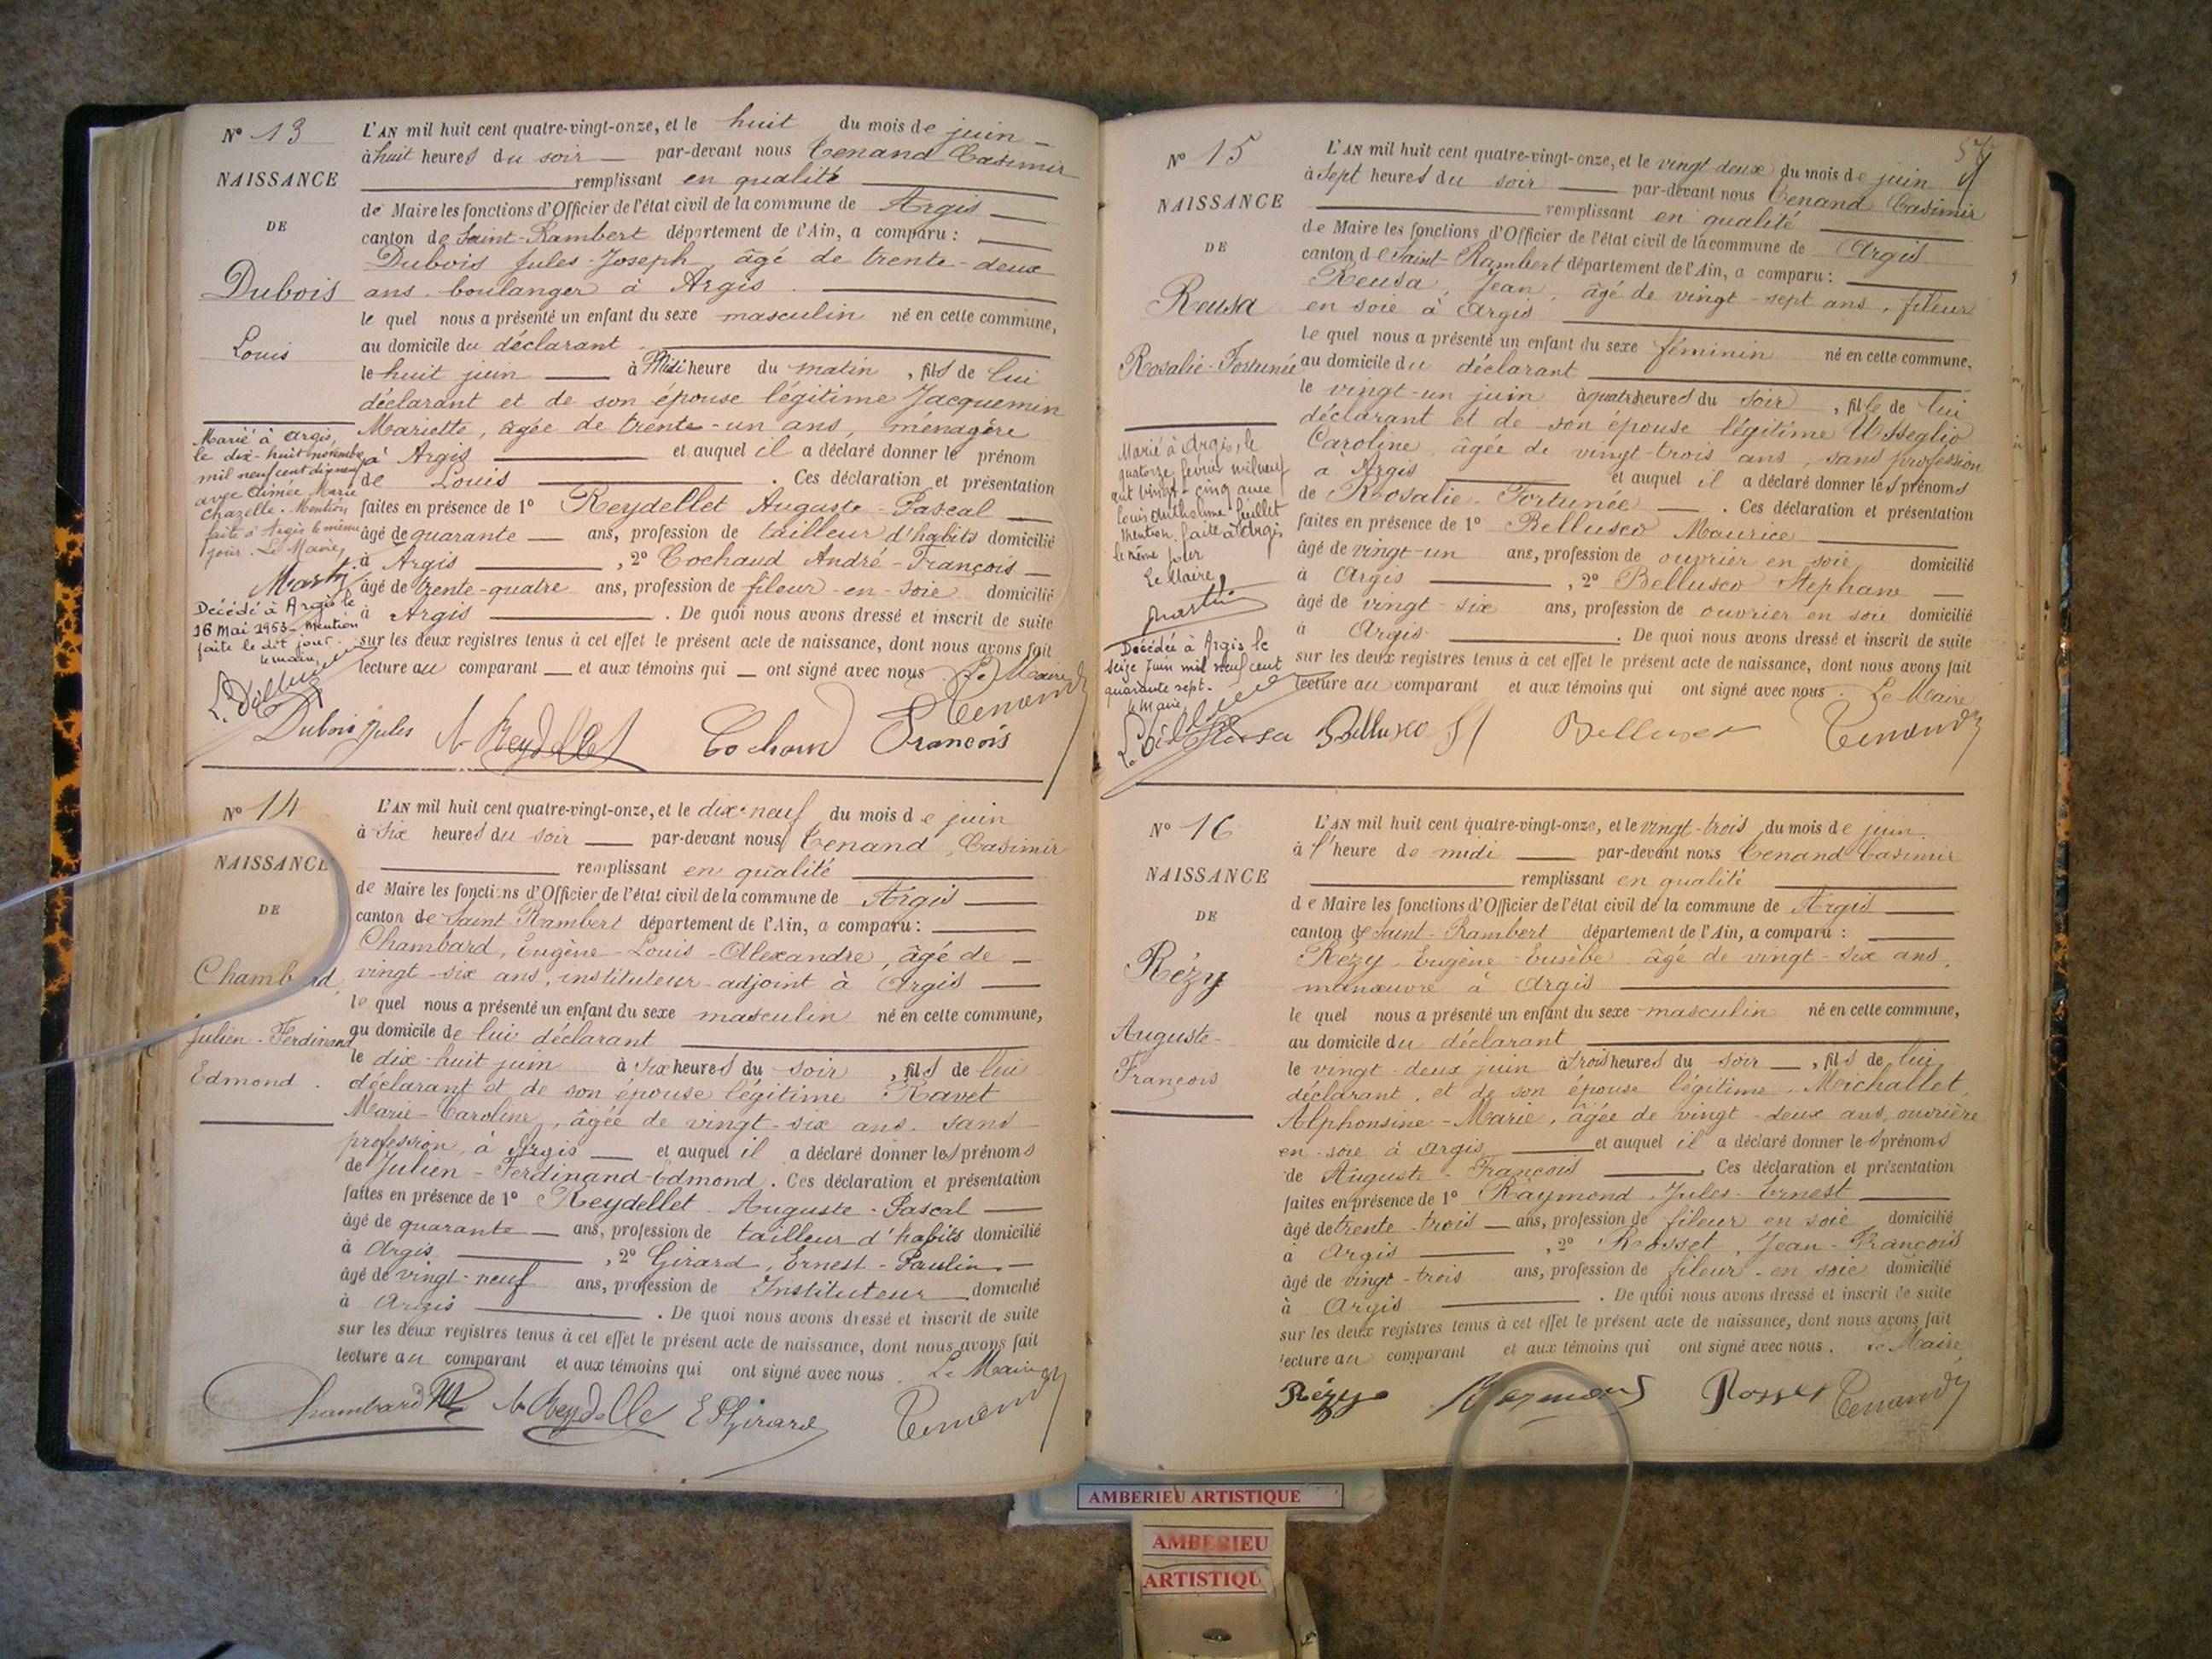 N° 13
NAISSANCE
DE
Dubois
Louis
L'AN mil huit cent quatre-vingt-onze, et le huit du mois de juin
à huit heures du soir par-devant nous Tenand Casimir
remplissant en qualité
de Maire les fonctions d'Officier de l'état civil de la commune de Argis
canton de Saint-Rambert département de l'Ain, a comparu :
Dubois Jules-Joseph, âgé de trente-deux
ans, boulanger à Argis.
le quel nous a présenté un enfant du sexe masculin né en cette commune,
au domicile du déclarant
le huit juin à Midi heure du matin, fils de lui
déclarant et de son épouse légitime Jacquemin
Mariette, âgée de trente-un ans, ménagère
à Argis et auquel il a déclaré donner le prénom
de Louis. Ces déclaration et présentation
faites en présence de 1° Reydellet Auguste-Pascal
âgé de quarante ans, profession de tailleur d'habits domicilié
à Argis, 2° Cochaud André-François
âgé de trente-quatre ans, profession de fileur-en-soie domicilié
à Argis. De quoi nous avons dressé et inscrit de suite
sur les deux registres tenus à cet effet le présent acte de naissance, dont nous avons fait
lecture au comparant et aux témoins qui ont signé avec nous. Le Maire
Marié à Argis,
le dix-huit novembre
mil neuf cent dix neuf
avec Aimée Marie
Chazelle. Mention
faite à Argis le même
jour. Le Maire,
Martin
Décédé à Argis le
16 Mai 1953. Mention
faite le dit jour.
le maire,
Dubois Jules A Reydellet Cochaud François Tenand
N° 14
NAISSANCE
DE
Chambard,
Julien-Ferdinand
Edmond.
L'AN mil huit cent quatre-vingt-onze, et le dix-neuf du mois de juin
à six heures du soir par-devant nous Tenand Casimir
remplissant en qualité
de Maire les fonctions d'Officier de l'état civil de la commune de Argis
canton de Saint Rambert département de l'Ain, a comparu :
Chambard, Eugène-Louis-Alexandre, âgé de
vingt-six ans, instituteur-adjoint à Argis
le quel nous a présenté un enfant du sexe masculin né en cette commune,
au domicile de lui déclarant
le dix-huit juin à six heures du soir, fils de lui
déclarant et de son épouse légitime Ravet
Marie-Caroline, âgée de vingt-six ans, sans
profession, à Argis et auquel il a déclaré donner les prénoms
de Julien-Ferdinand-Edmond. Ces déclaration et présentation
faites en présence de 1° Reydellet Auguste-Pascal
âgé de quarante ans, profession de tailleur d'habits domicilié
à Argis, 2° Girard, Ernest-Paulin
âgé de vingt-neuf ans, profession de Instituteur domicilié
à Argis. De quoi nous avons dressé et inscrit de suite
sur les deux registres tenus à cet effet le présent acte de naissance, dont nous avons fait
lecture au comparant et aux témoins qui ont signé avec nous. Le Maire
Chambard A Reydelle E Girard Tenand
N° 15
NAISSANCE
DE
Reusa
Rosalie-Fortunée
L'AN mil huit cent quatre-vingt-onze, et le vingt-deux du mois de juin
à sept heures du soir par-devant nous Tenand Casimir
remplissant en qualité
de Maire les fonctions d'Officier de l'état civil de la commune de Argis
canton de Saint-Rambert département de l'Ain, a comparu :
Reusa, Jean, âgé de vingt-sept ans, fileur
en soie à Argis
le quel nous a présenté un enfant du sexe féminin né en cette commune,
au domicile du déclarant
le vingt-un juin à quatre heures du soir, fille de lui
déclarant et de son épouse légitime Usseglio
Caroline, âgée de vingt-trois ans, sans profession
à Argis et auquel il a déclaré donner les prénoms
de Rosalie-Fortunée. Ces déclaration et présentation
faites en présence de 1° Bellusco Maurice
âgé de vingt-un ans, profession de ouvrier en soie domicilié
à Argis, 2° Bellusco Stephano
âgé de vingt-six ans, profession de ouvrier en soie domicilié
à Argis. De quoi nous avons dressé et inscrit de suite
sur les deux registres tenus à cet effet le présent acte de naissance, dont nous avons fait
lecture au comparant et aux témoins qui ont signé avec nous. Le Maire
Marié à Argis, le
quatorze février mil neuf
cent vingt-cinq avec
Louis Anthelme Juillet
Mention faite à Argis
le même jour
Le Maire,
Martin
Décédée à Argis le
seize Juin mil neuf cent
quarante sept.
le maire,
Reusa Bellusco St Bellusco Tenand
N° 16
NAISSANCE
DE
Rézy
Auguste-
François
L'AN mil huit cent quatre-vingt-onze, et le vingt-trois du mois de juin
à l'heure de midi par-devant nous Tenand Casimir
remplissant en qualité
de Maire les fonctions d'Officier de l'état civil de la commune de Argis
canton de Saint-Rambert département de l'Ain, a comparu :
Rézy Eugène-Eusèbe âgé de vingt-six ans,
manœuvre à Argis
le quel nous a présenté un enfant du sexe masculin né en cette commune,
au domicile du déclarant
le vingt-deux juin à trois heures du soir, fils de lui
déclarant, et de son épouse légitime Michallet,
Alphonsine-Marie, âgée de vingt-deux ans, ouvrière
en soie, à Argis et auquel il a déclaré donner les prénoms
de Auguste-François. Ces déclaration et présentation
faites en présence de 1° Raymond, Jules-Ernest
âgé de trente-trois ans, profession de fileur en soie domicilié
à Argis, 2° Rosset, Jean-François
âgé de vingt-trois ans, profession de fileur-en soie domicilié
à Argis. De quoi nous avons dressé et inscrit de suite
sur les deux registres tenus à cet effet le présent acte de naissance, dont nous avons fait
lecture au comparant et aux témoins qui ont signé avec nous. Le Maire,
Rézy Raymond Rosset Tenand
AMBERIEU ARTISTIQUE
AMBERIEU
ARTISTIQU